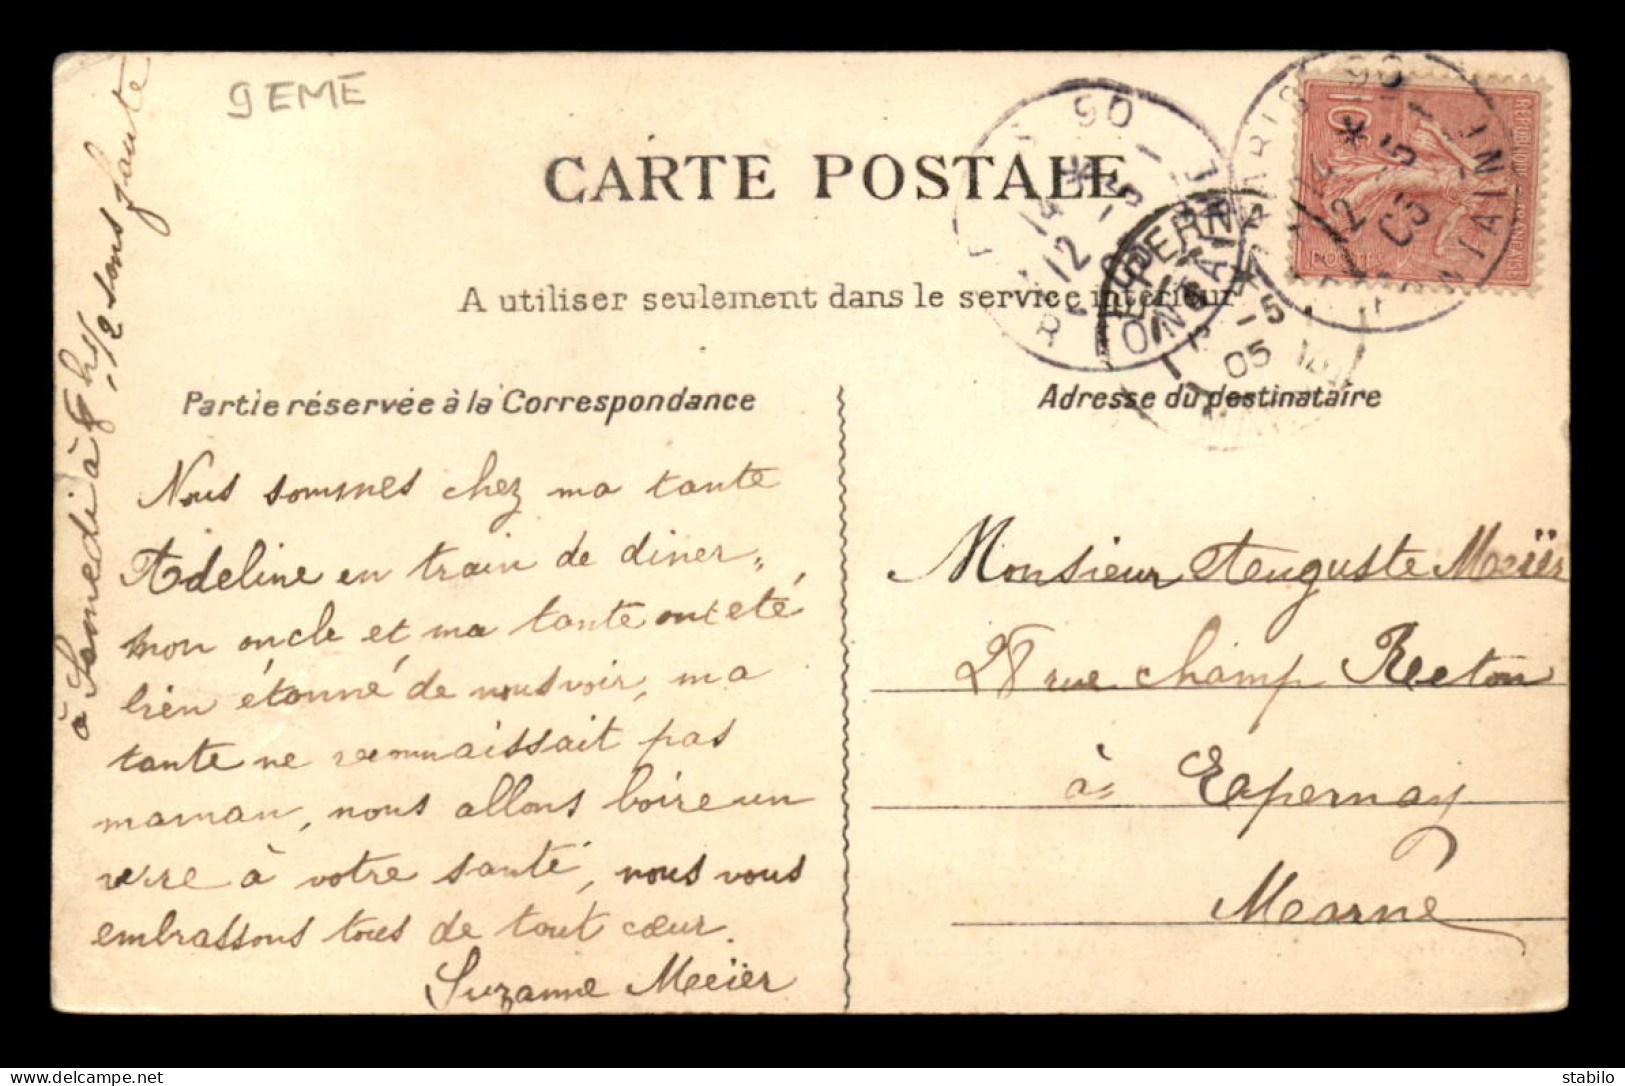 9 EME
CARTE POSTALE
A utiliser seulement dans le service intérieur
Partie réservée à la Correspondance
Nous sommes chez ma tante
Adeline en train de diner,,
mon oncle et ma tante ont été
bien étonné de nous voir, ma
tante ne reconnaissait pas
maman, nous allons boire un
verre à votre santé, nous vous
embrassons tous de tout cœur.
Suzanne Meeïer
à Samedi à 8 h, 1/2 sans faute
Adresse du destinataire
Monsieur Auguste Meeïer
28 rue Champ Reeton
à Epernay
Marne
10
REPUBLIQUE FRANCAISE
POSTES
PARIS 90
14 *
12 -5
05
EPERNAY
-5
05
MARNE
delcampe.net
stabilo